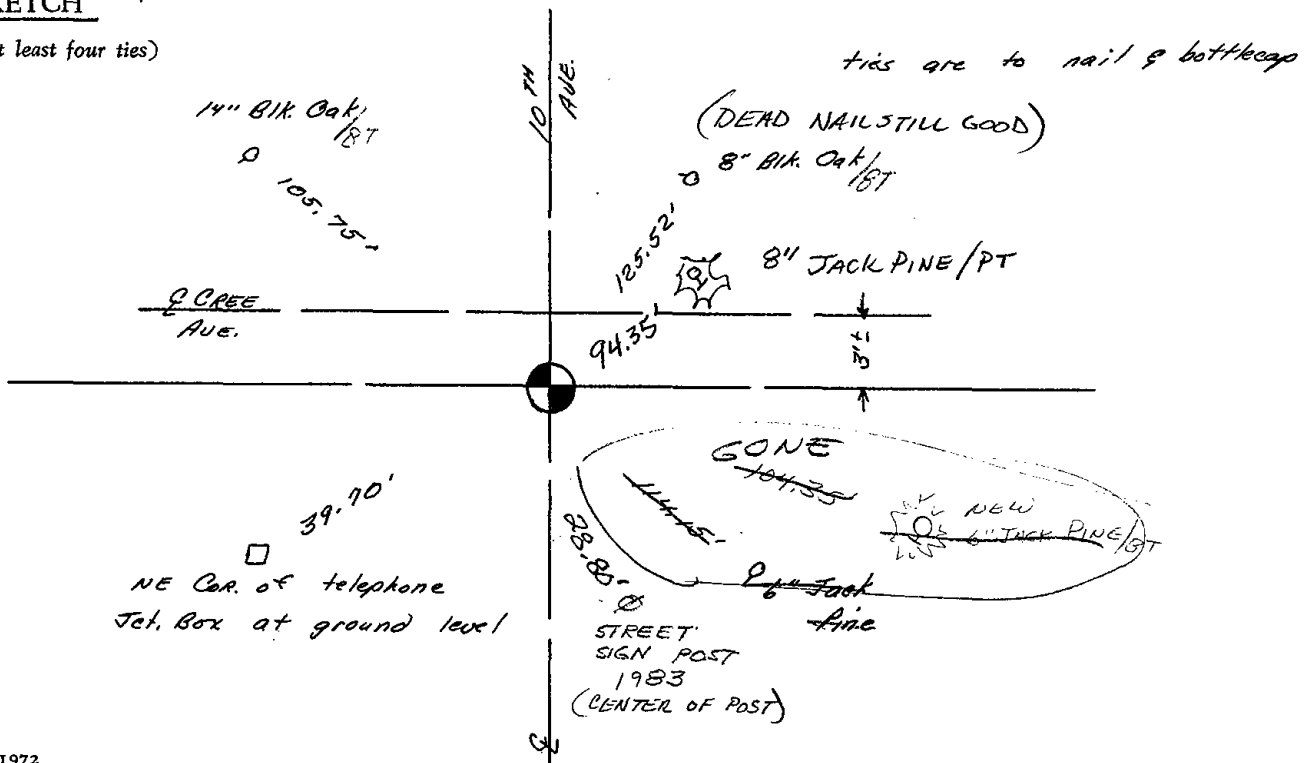 KETCH
t least four ties)
ties are to nail & bottlecap
10TH AVE.
14" Blk. Oak/BT
105.75'
(DEAD NAIL STILL GOOD)
8" Blk. Oak/BT
125.52'
8" JACK PINE/PT
℄ CREE
AVE.
94.35'
3'±
GONE
104.35
44.15'
NEW
6" JACK PINE/BT
6" Jack
Pine
39.70'
NE COR. of telephone
Jct. Box at ground level
28.80'
STREET
SIGN POST
1983
(CENTER OF POST)
℄
1972